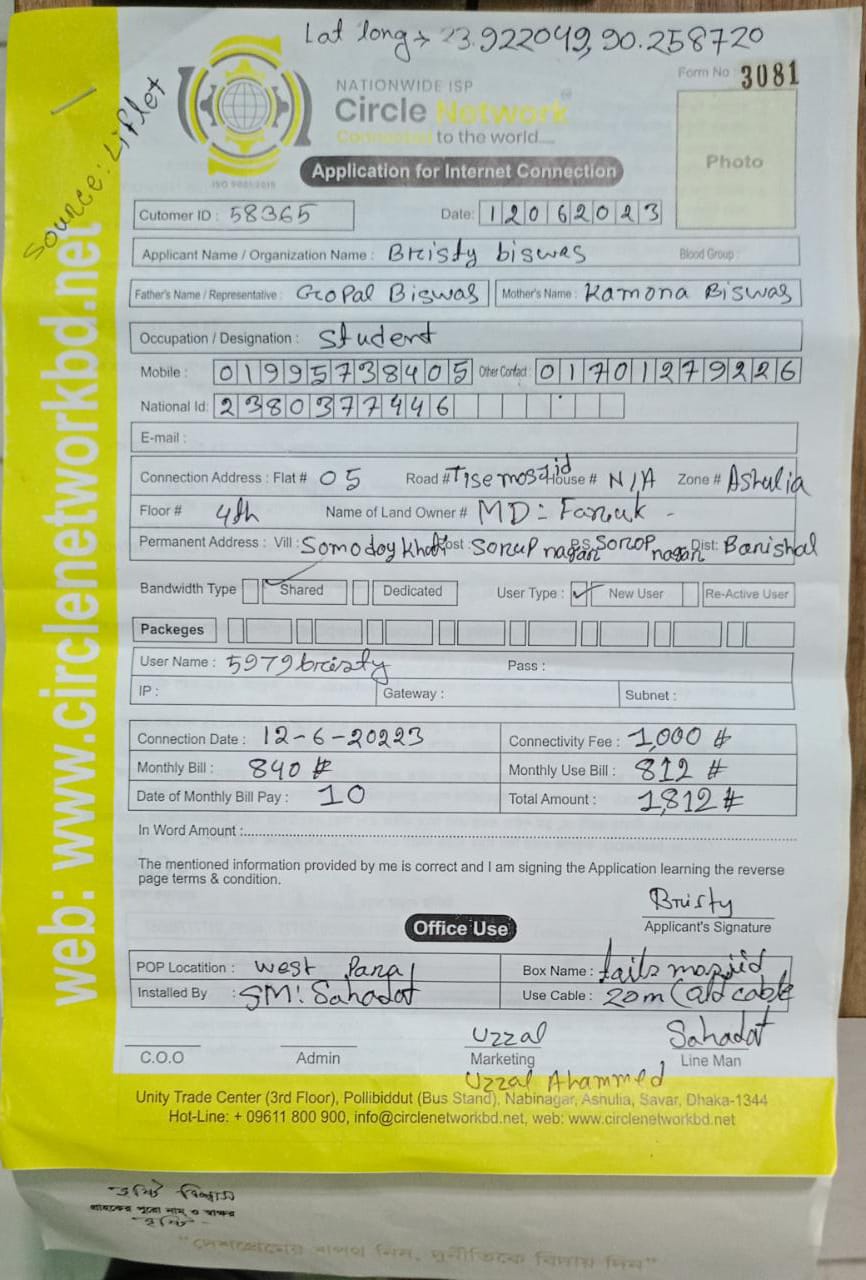 Lat long → 23.922049, 90.258720
Source: Liflet
NATIONWIDE ISP
Form No 3081
Circle Network
Connected to the world....
Photo
ISO 9001:2015
Application for Internet Connection
Cutomer ID : 58365 Date: 12062023
Applicant Name / Organization Name : Bristy biswas Blood Group :
Father's Name / Representative : Gopal Biswas Mother's Name : Kamona Biswas
Occupation / Designation : Student
Mobile : 01995738405 Other Contact : 01701279226
National Id: 2380377446
E-mail :
Connection Address : Flat # 05 Road # Tise moszid House # N/A Zone # Ashulia
Floor # 4th Name of Land Owner # MD: Faruk -
Permanent Address : Vill : Somodoy khathi Post : Sorup nagari P.S: Sorop nagari Dist: Barishal
Bandwidth Type Shared Dedicated User Type : ✓ New User Re-Active User
Packeges
User Name : 5979bristy Pass :
IP : Gateway : Subnet :
Connection Date : 12-6-20223 Connectivity Fee : 1,000 #
Monthly Bill : 840 # Monthly Use Bill : 812 #
Date of Monthly Bill Pay : 10 Total Amount : 1,812 #
In Word Amount :
The mentioned information provided by me is correct and I am signing the Application learning the reverse
page terms & condition.
Bristy
Applicant's Signature
Office Use
POP Locatition : West Para Box Name : tails mozjid
Installed By : SM: Sahadat Use Cable : 20m (old cable
Uzzal Sahadat
C.O.O Admin Marketing Line Man
Uzzal Ahammed
Unity Trade Center (3rd Floor), Pollibiddut (Bus Stand), Nabinagar, Ashulia, Savar, Dhaka-1344
Hot-Line: + 09611 800 900, info@circlenetworkbd.net, web: www.circlenetworkbd.net
web: www.circlenetworkbd.net
বৃষ্টি বিশ্বাস
গ্রাহকের পুরো নাম ও স্বাক্ষর
বৃষ্টি -
"দেশপ্রেমের শপথ নিন, দুর্নীতিকে বিদায় দিন"